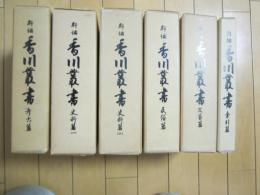 新編 香川叢書 考古篇
新編 香川叢書 史料篇(一)
新編 香川叢書 史料篇(二)
新編 香川叢書 民俗篇
新編 香川叢書 文芸篇
新編 香川叢書 索引篇